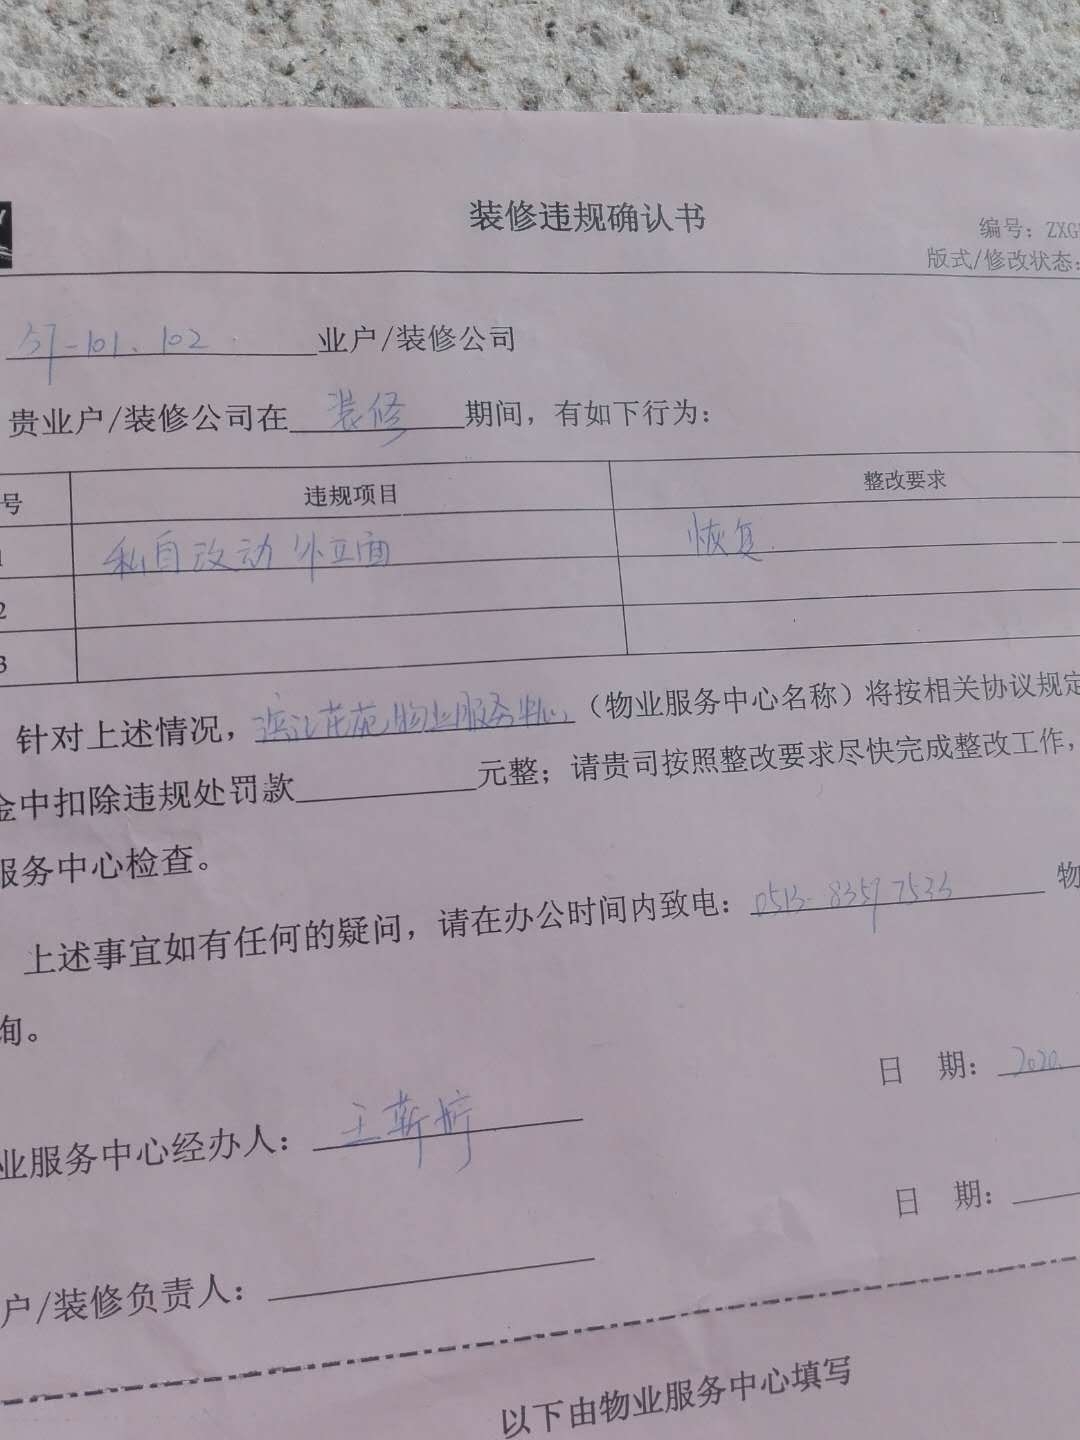 装修违规确认书
编号：ZXG
版式/修改状态：
57-101、102 业户/装修公司
贵业户/装修公司在 装修 期间，有如下行为：
号 违规项目 整改要求
1 私自改动外立面 恢复.
2
3
针对上述情况，滨江花苑物业服务中心（物业服务中心名称）将按相关协议规定
金中扣除违规处罚款 元整；请贵司按照整改要求尽快完成整改工作，
服务中心检查。
上述事宜如有任何的疑问，请在办公时间内致电：0513-83597533 物
询。
日 期：2020.
业服务中心经办人：王
日 期：
户/装修负责人：
以下由物业服务中心填写